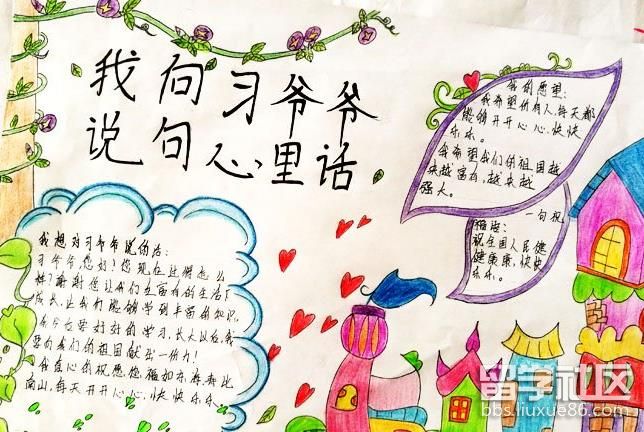 我向习爷爷
说句心里话
我的愿望:
我希望所有人,每天都
能够开开心心,快快
乐乐。
我希望我们的祖国越
来越富有,越来越
强大。
一句祝
福语:
祝全国人民健
健康康,快快
乐乐。
我想对习爷爷说的话:
习爷爷,您好!您现在过得怎么
样?谢谢您让我们在富有的生活下
成长,让我们能够学到丰富的知识。
我今后要好好的学习,长大以后,我
要为我们的祖国献出一份力!
我衷心的祝愿您福如东海寿比
南山,每天开开心心,快快乐乐。
留学社区
bbs.liuxue86.com